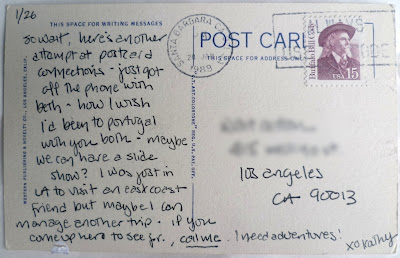 1/26
THIS SPACE FOR WRITING MESSAGES
so wait, here's another
attempt at postcard
connections - just got
off the phone with
beth - how I wish
I'd been to portugal
with you both - maybe
we can have a slide
show? I was just in
LA to visit an east coast
friend but maybe I can
manage another trip. if you
come up here to see jr., call me. I need adventures!
xo kathy
WESTERN PUBLISHING & NOVELTY CO., LOS ANGELES, CALIF.
POST CAR
THIS SPACE FOR ADDRESS
SANTA BARBARA
1989
Buffalo Bill Cody
USA 15
los angeles
CA 90013